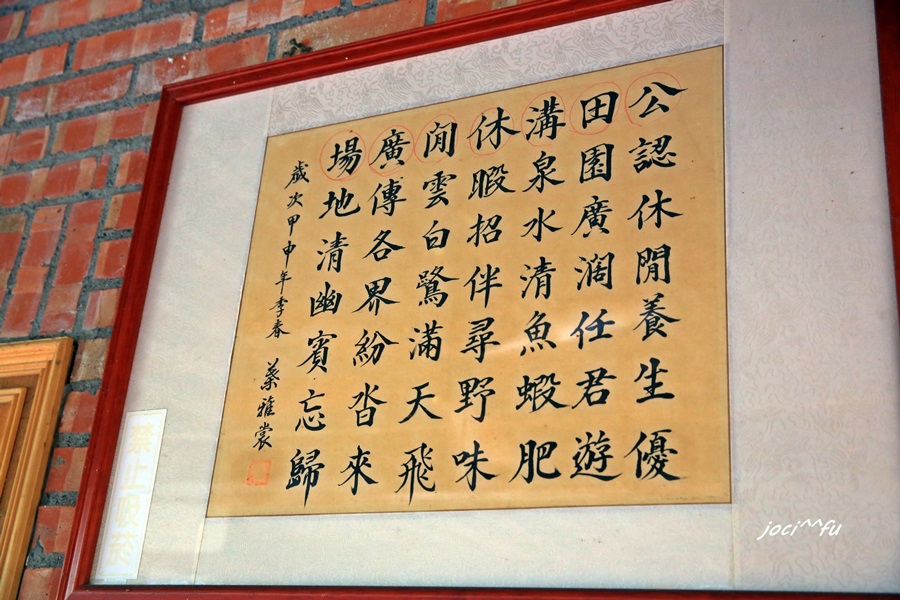 公認休閒養生優
田園廣濶任君遊
溝泉水清魚蝦肥
休暇招伴尋野味
閒雲白鷺滿天飛
廣傳各界紛沓來
場地清幽賓忘歸
歲次甲申年季春 蔡雅裳
禁止吸菸
joci^^fu